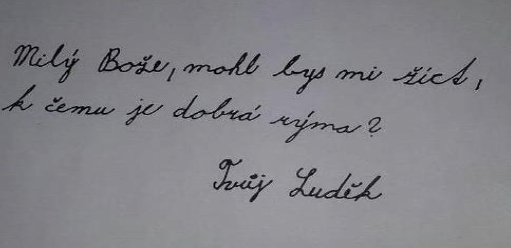 Milý Bože, mohl bys mi říct,
k čemu je dobrá rýma?
Tvůj Luděk